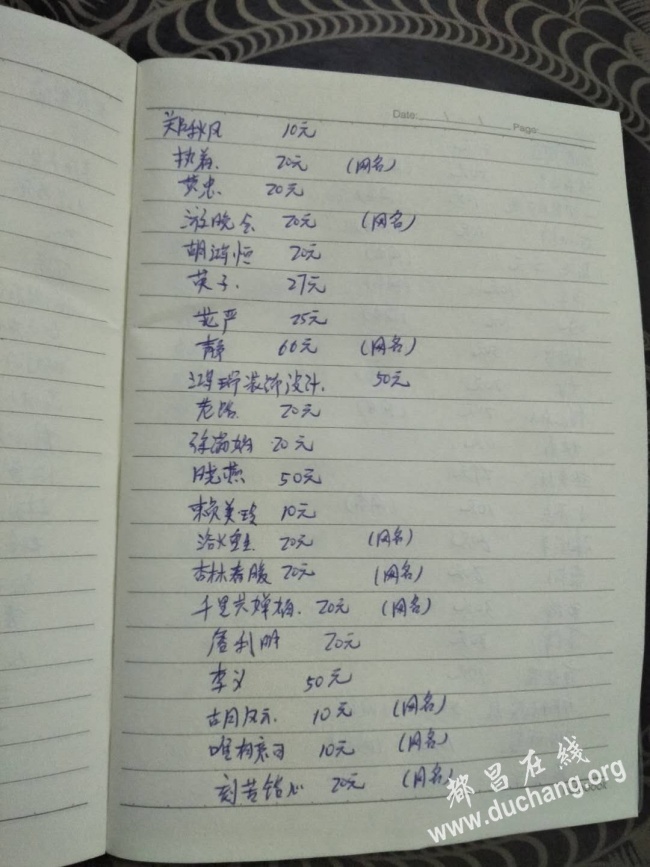 Date: / / Page:
郑秋风 10元
执着 20元 (网名)
黄忠 20元
游晓会 20元 (网名)
胡鸿恒 20元
英子 27元
范严 25元
静 60元 (网名)
鸿瑞装饰设计 50元
20元
20元
晓燕 50元
赖美玲 10元
20元 (网名)
杏林春暖 20元 (网名)
千里共婵娟 20元 (网名)
詹利明 20元
李义 50元
胡风云 10元 (网名)
10元 (网名)
刻苦铭心 20元 (网名)
都昌在线
www.duchang.org